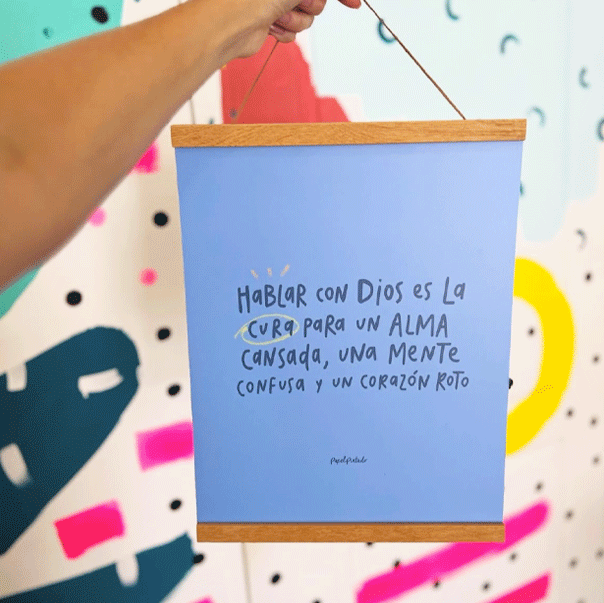 HaBLAR con Dios es La
cura para un ALMA
cansada, una Mente
confusa y un corazón Roto
PapelPintado